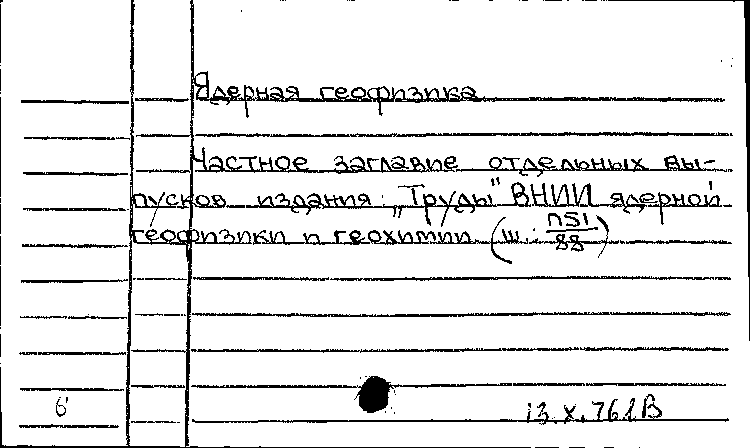 Ядерная геофизика
Частное заглавие отдельных вы-
пусков издания: „Труды" ВНИИ ядерной
геофизики и геохимии. (Ш.: П51/88)
6
13.X.76 LB